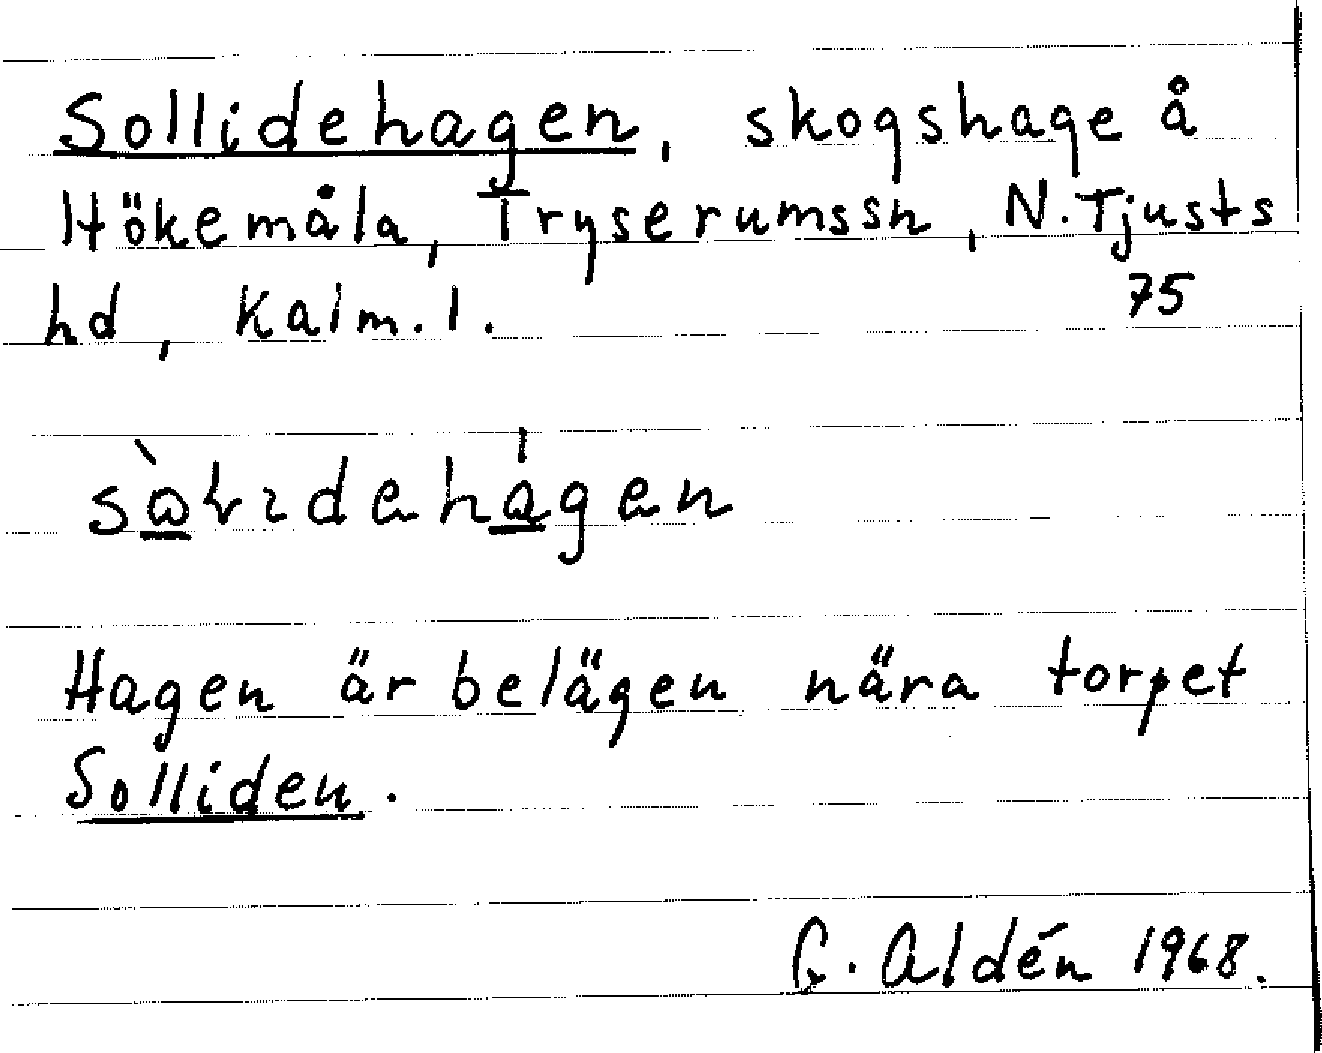 Sollidehagen, skogshage å
Hökemåla, Tryserumssn, N. Tjusts
hd, Kalm. l. 75
Hagen är belägen nära torpet
Solliden.
G. Aldén 1968.